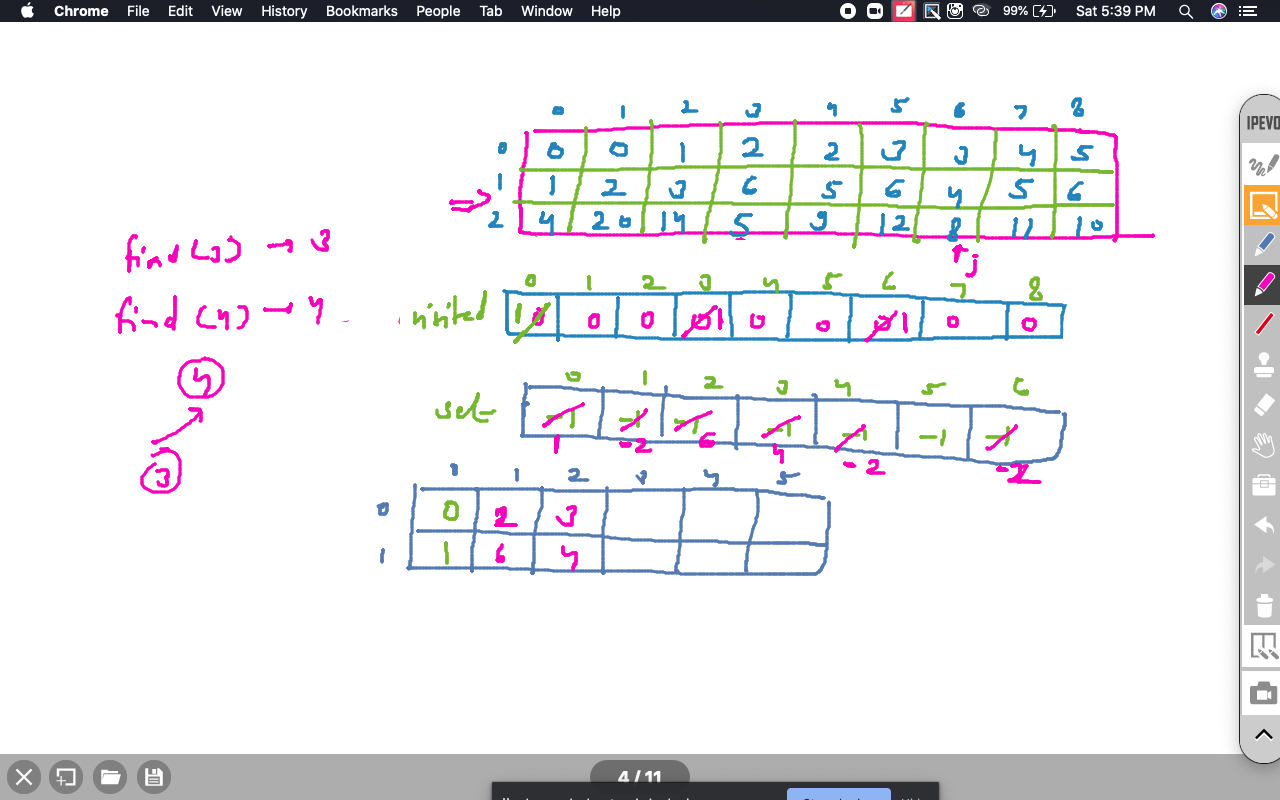 Chrome File Edit View History Bookmarks People Tab Window Help 99% Sat 5:39 PM
0 1 2 3 4 5 6 7 8
IPEVO
0 0 0 1 2 2 3 3 4 5
1 1 2 3 6 5 6 4 5 6
⇒
2 4 20 14 5 9 12 8 11 10
j
find(3) → 3
find(4) → 4
0 1 2 3 4 5 6 7 8
visited 1 0 0 0 0 1 0 0 0 1 0 0
4
3
0 1 2 3 4 5 6
set -1 -1 -1 -1 -1 -1 -1
1 -2 6 4 -2 -2
0 1 2 3 4 5
0 0 2 3
1 1 6 4
4 / 11